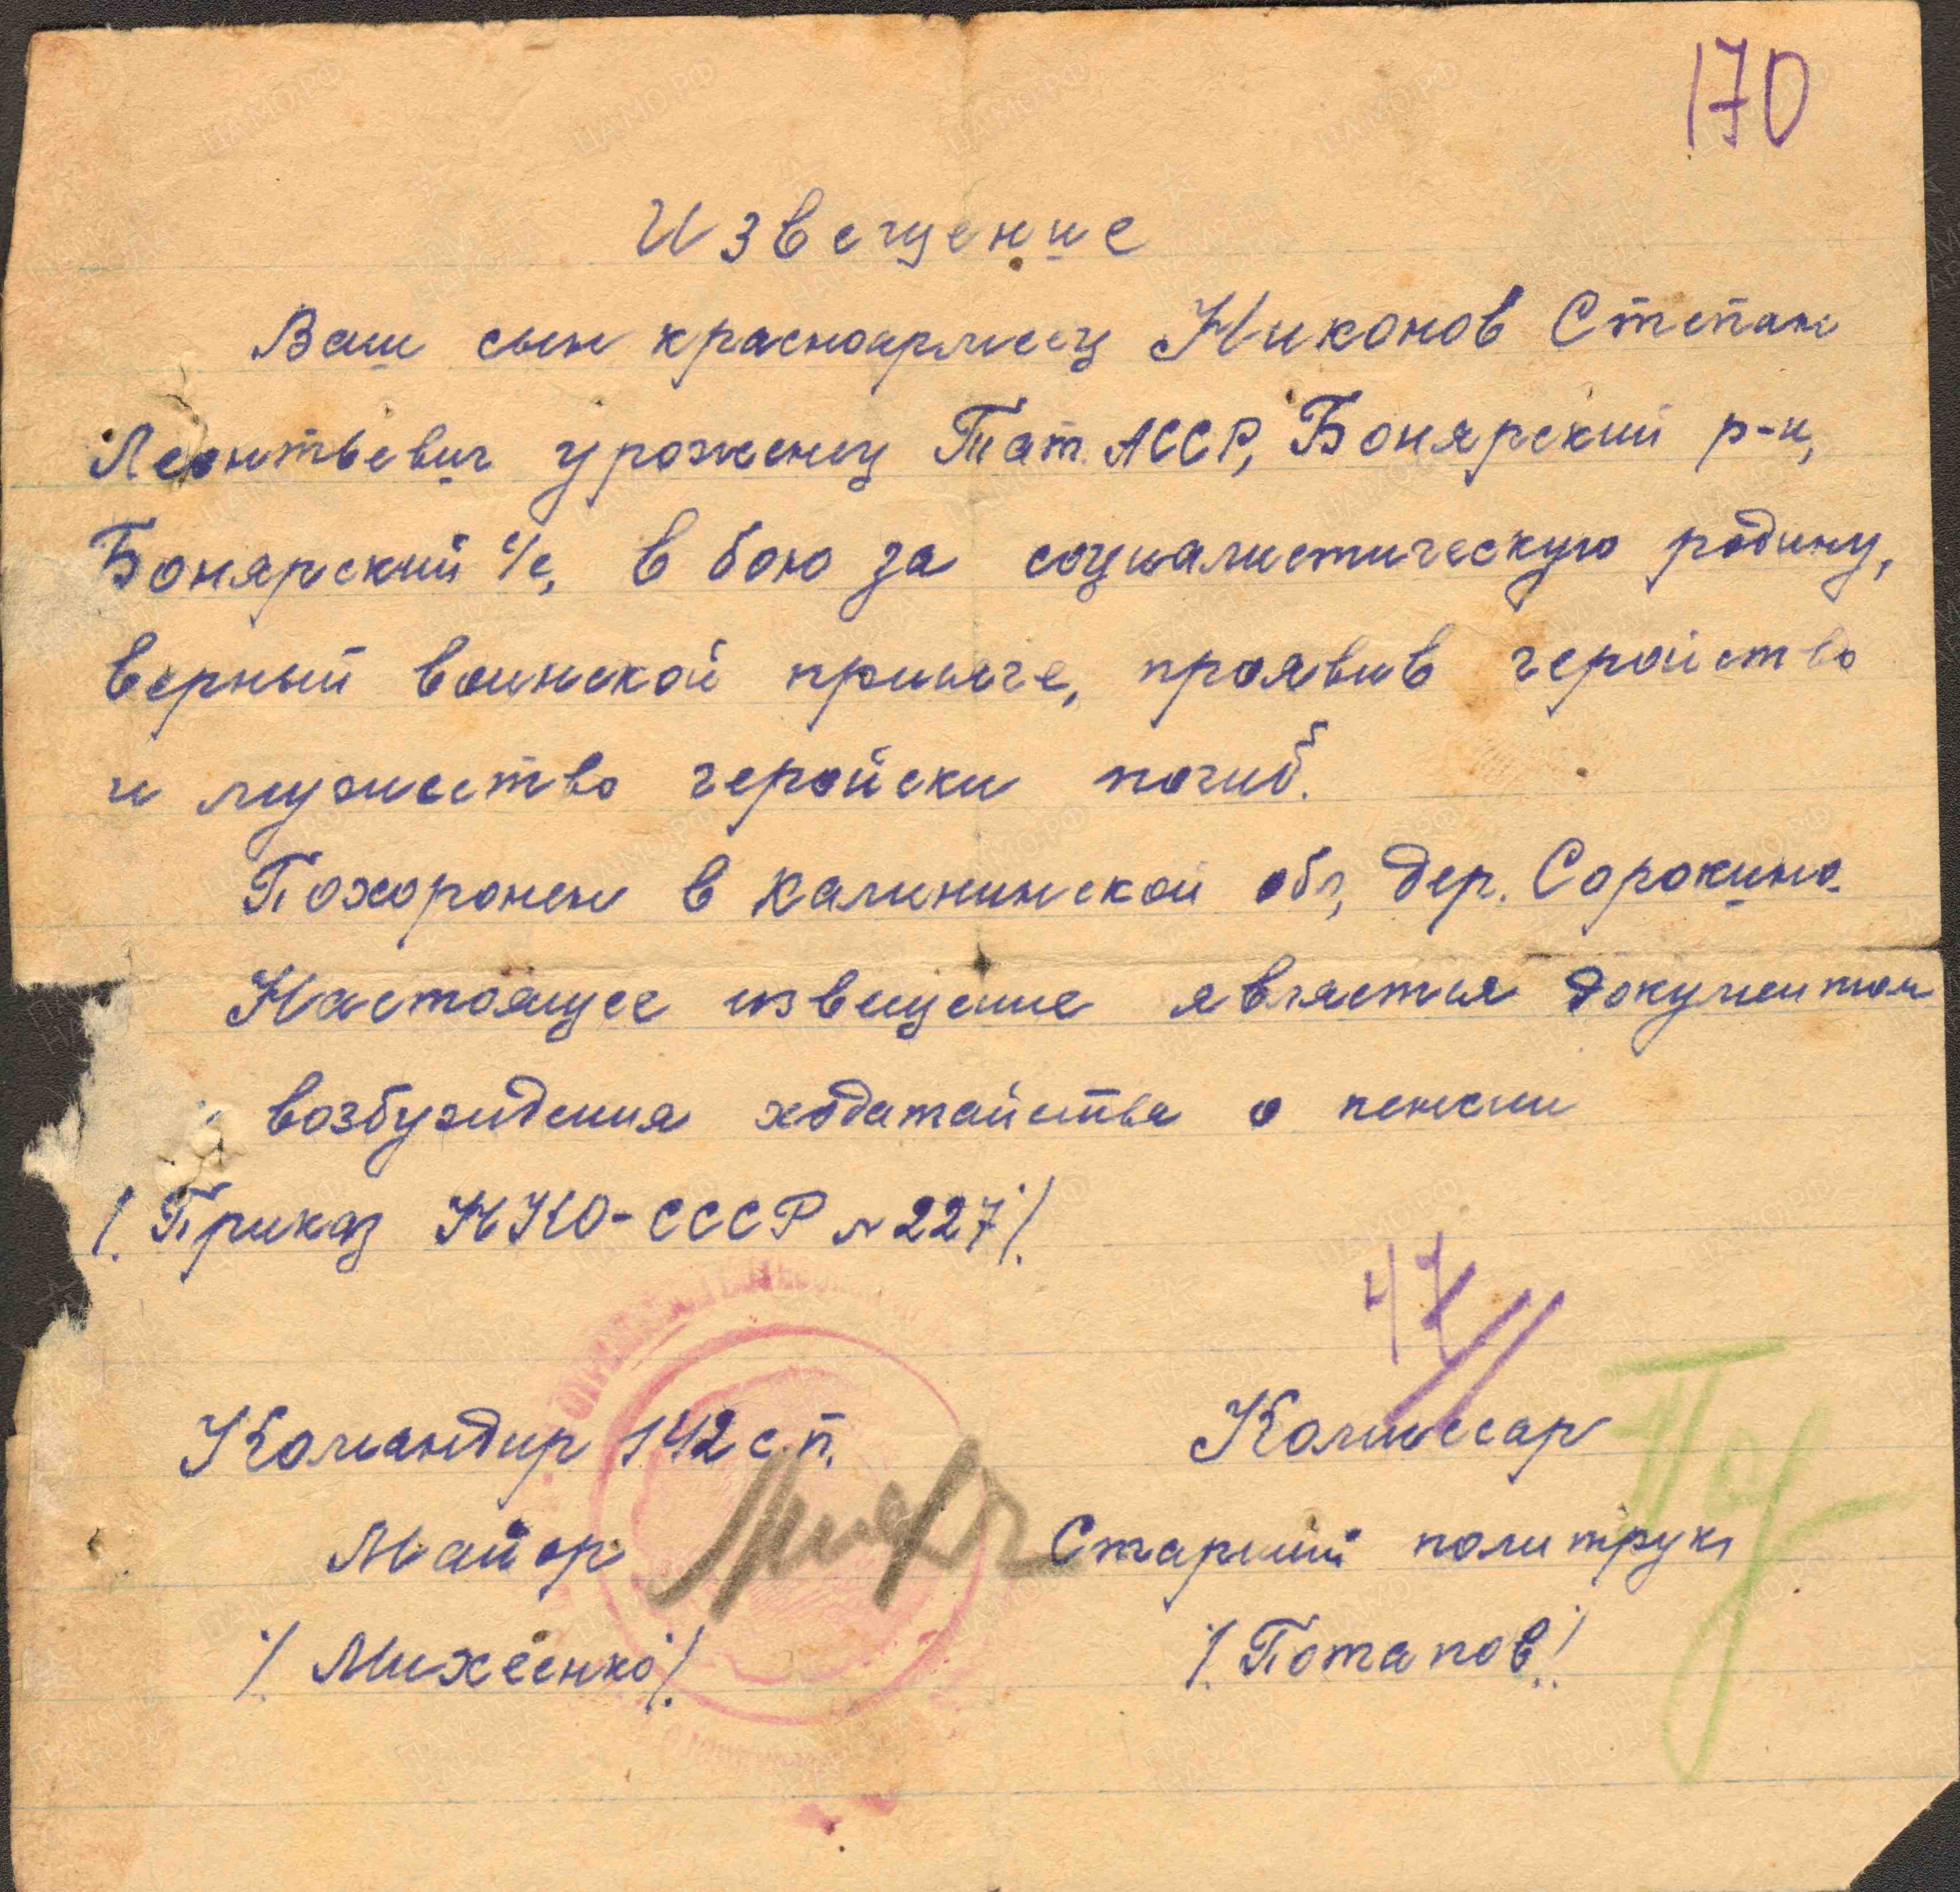 170
Извещение
Ваш сын красноармеец Никонов Степан
Леонтьевич уроженец Тат. АССР, Бонярский р-н,
Бонярский с/с, в бою за социалистическую родину,
верный воинской присяге, проявив геройство
и мужество геройски погиб.
Похоронен в Калининской обл, дер. Сорокино.
Настоящее извещение является документом
возбуждения ходатайства о пенсии
/. Приказ НКО-СССР № 227 /.
47
Командир 142 с.п. Комиссар
Майор Старший политрук
/. Михеенко /. /. Потапов /.